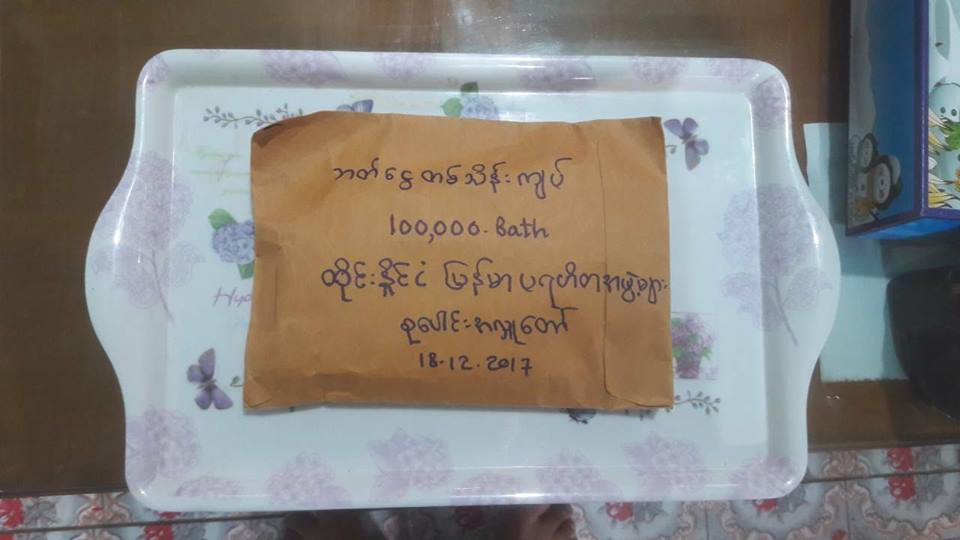 ဘတ်ငွေ တစ်သိန်းကျပ်
100,000. Bath
ထိုင်းနိုင်ငံ မြန်မာပရဟိတအဖွဲ့များ
စုပေါင်းအလှူတော်
18.12.2017